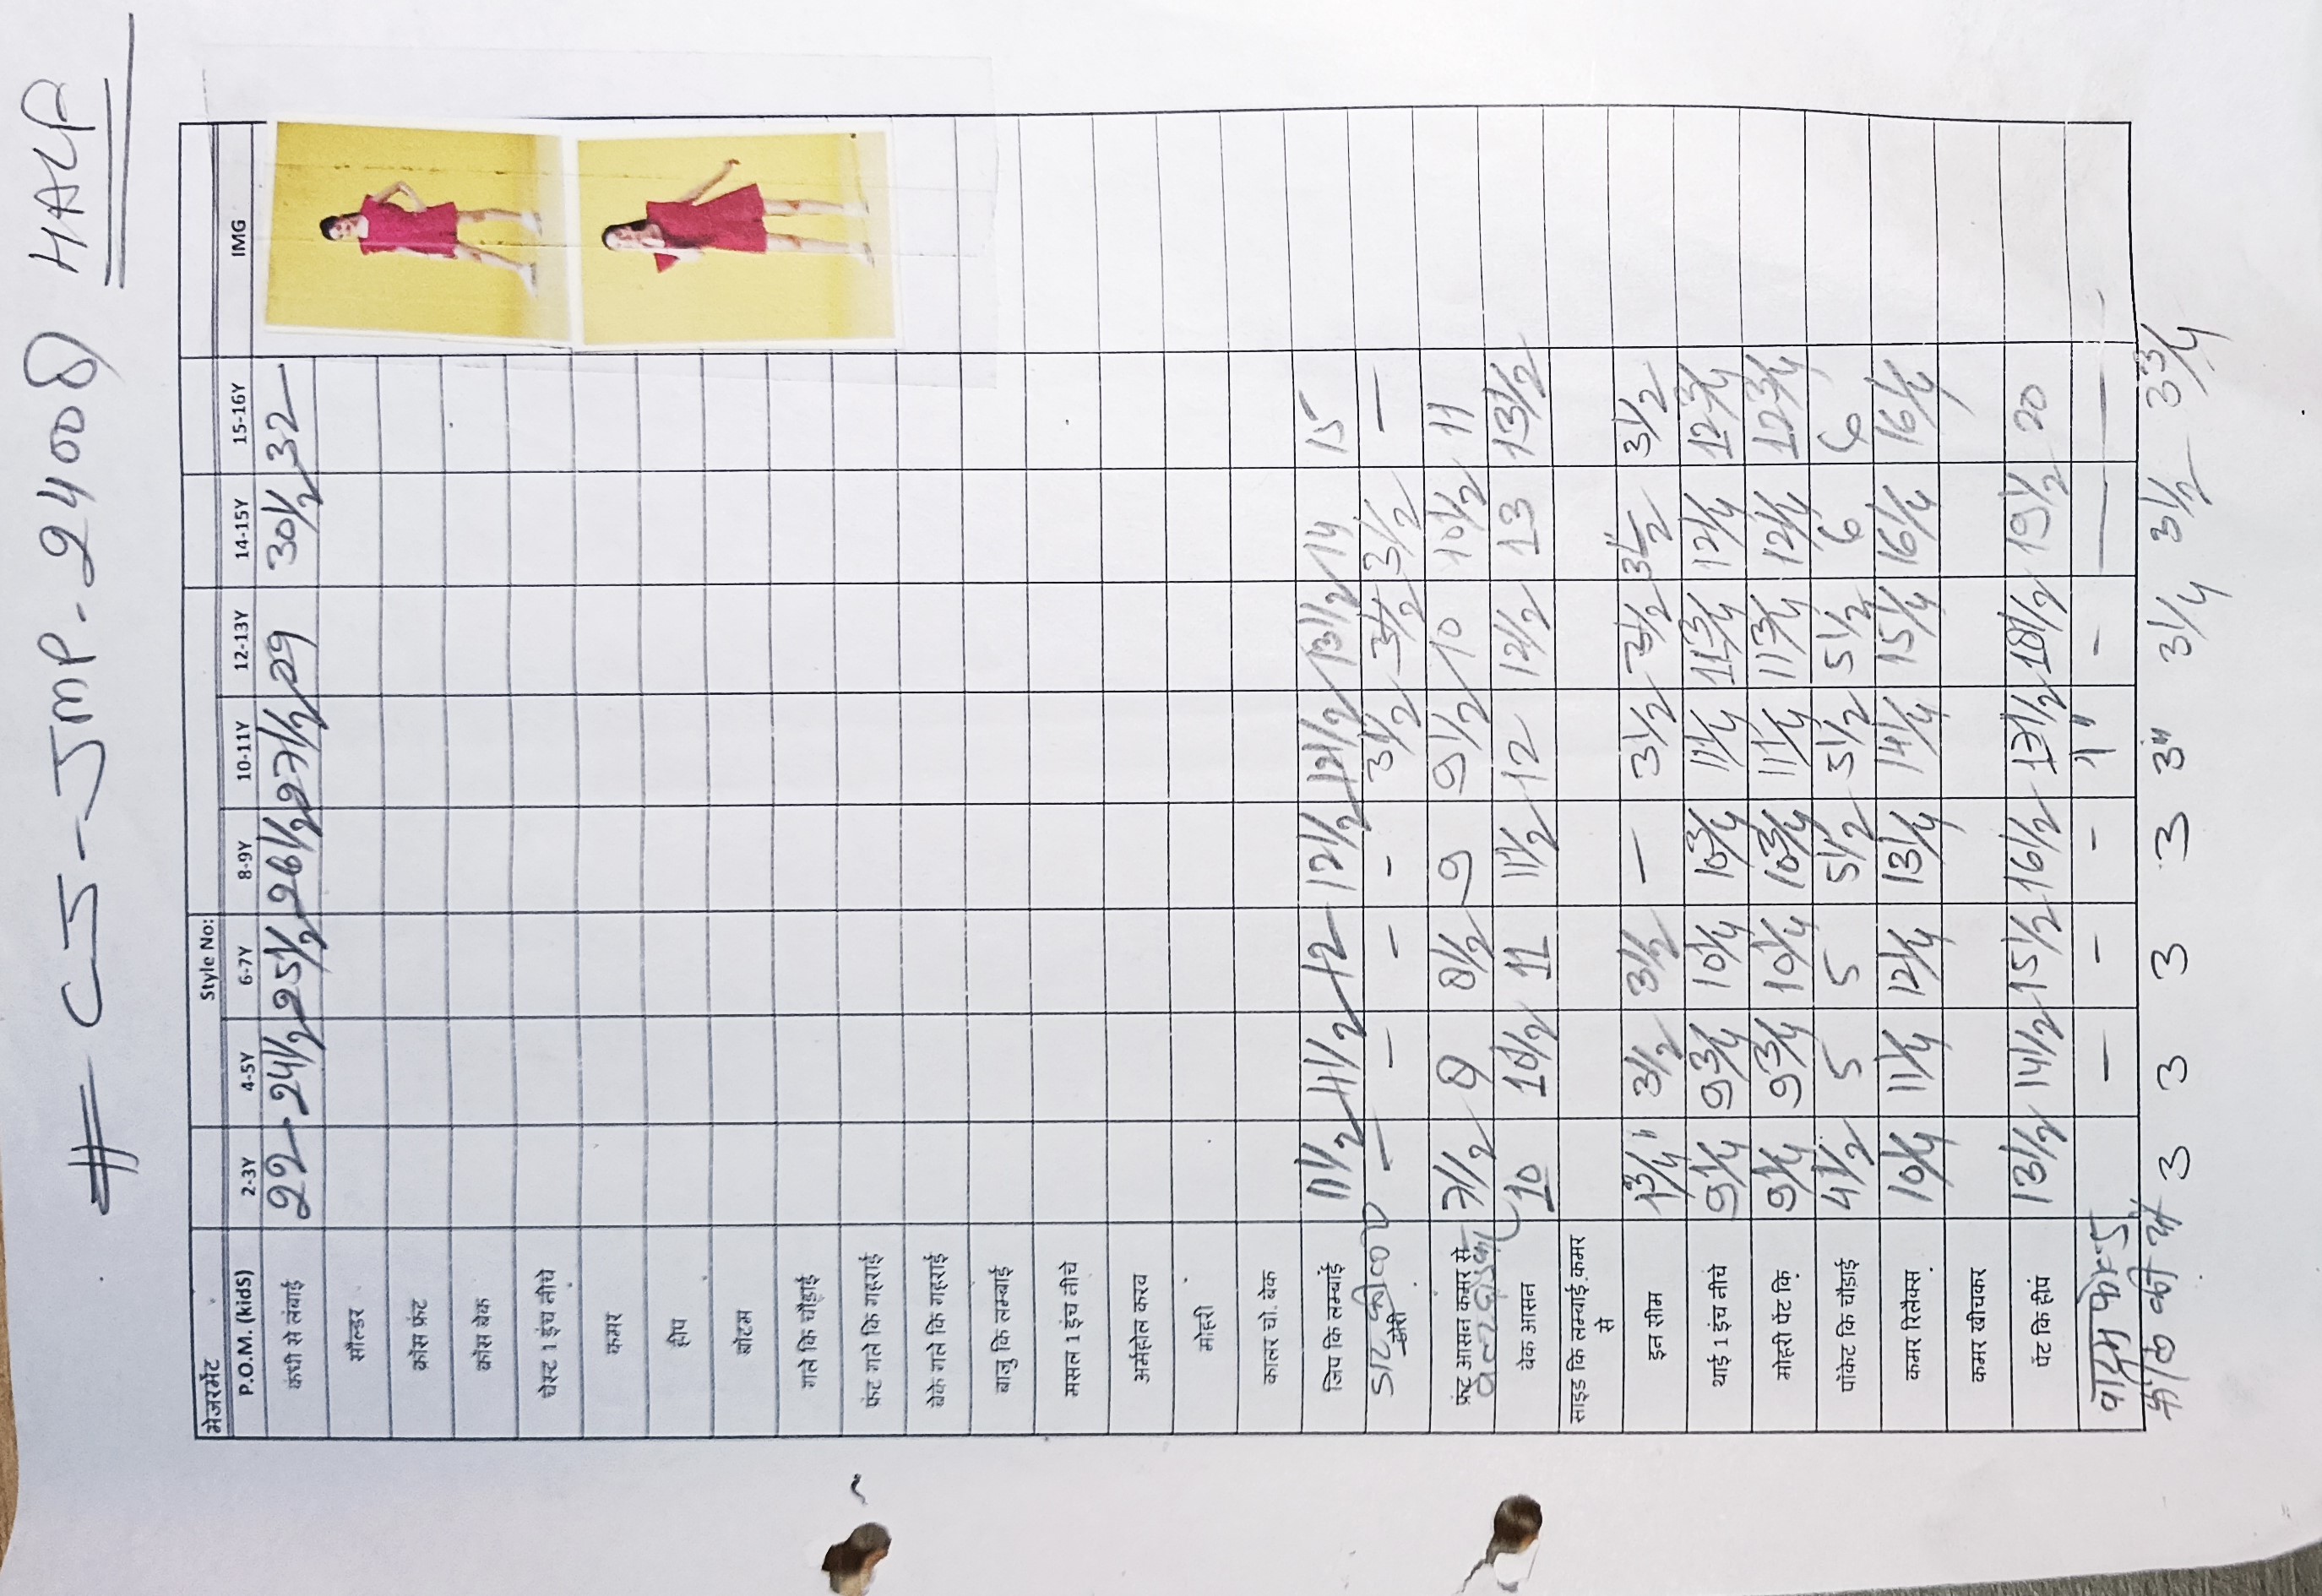 # CJ-JMP-24008 HALF
मेजरमेंट Style No:
P.O.M. (kidS) 2-3Y 4-5Y 6-7Y 8-9Y 10-11Y 12-13Y 14-15Y 15-16Y IMG
कंधी से लंबाई 22 24½ 25½ 26½ 27½ 29 30½ 32
सौल्डर
क्रॉस फ्रंट
क्रॉस बेक
चेस्ट 1 इंच नीचे
कमर
हीप
बॉटम
गले कि चौड़ाई
फ्रंट गले कि गहराई
बेके गले कि गहराई
बाजु कि लम्बाई
मसल 1 इंच नीचे
अर्महोल करव
मोहरी
कालर चो. बेक
जिप कि लम्बाई 11½ 11½ 12 12½ 12½ 13½ 14 15
- - - - 3½ 3½ 3½ -
फ्रंट आसन कमर से 7½ 8 8½ 9 9½ 10 10½ 11
बेक आसन 10 10½ 11 11½ 12 12½ 13 13½
साइड कि लम्बाई कमर से
इन सीम 1¾" 3½ 3½ - 3½ 3½ 3½ 3½
थाई 1 इंच नीचे 9¼ 9¾ 10¼ 10¾ 11¼ 11¾ 12¼ 12¾
मोहरी पेंट कि 9¼ 9¾ 10¼ 10¾ 11¼ 11¾ 12¼ 12¾
पॉकेट कि चौडाई 4½ 5 5 5½ 5½ 5½ 6 6
कमर रिलैक्स 10¼ 11¼ 12¼ 13¼ 14¼ 15¼ 16¼ 16¼
कमर खीचकर
पेंट कि हीप 13½ 14½ 15½ 16½ 17½ 18½ 19½ 20
- - - 1" - - -
3 3 3 3 3" 3¼ 3½ 3¾